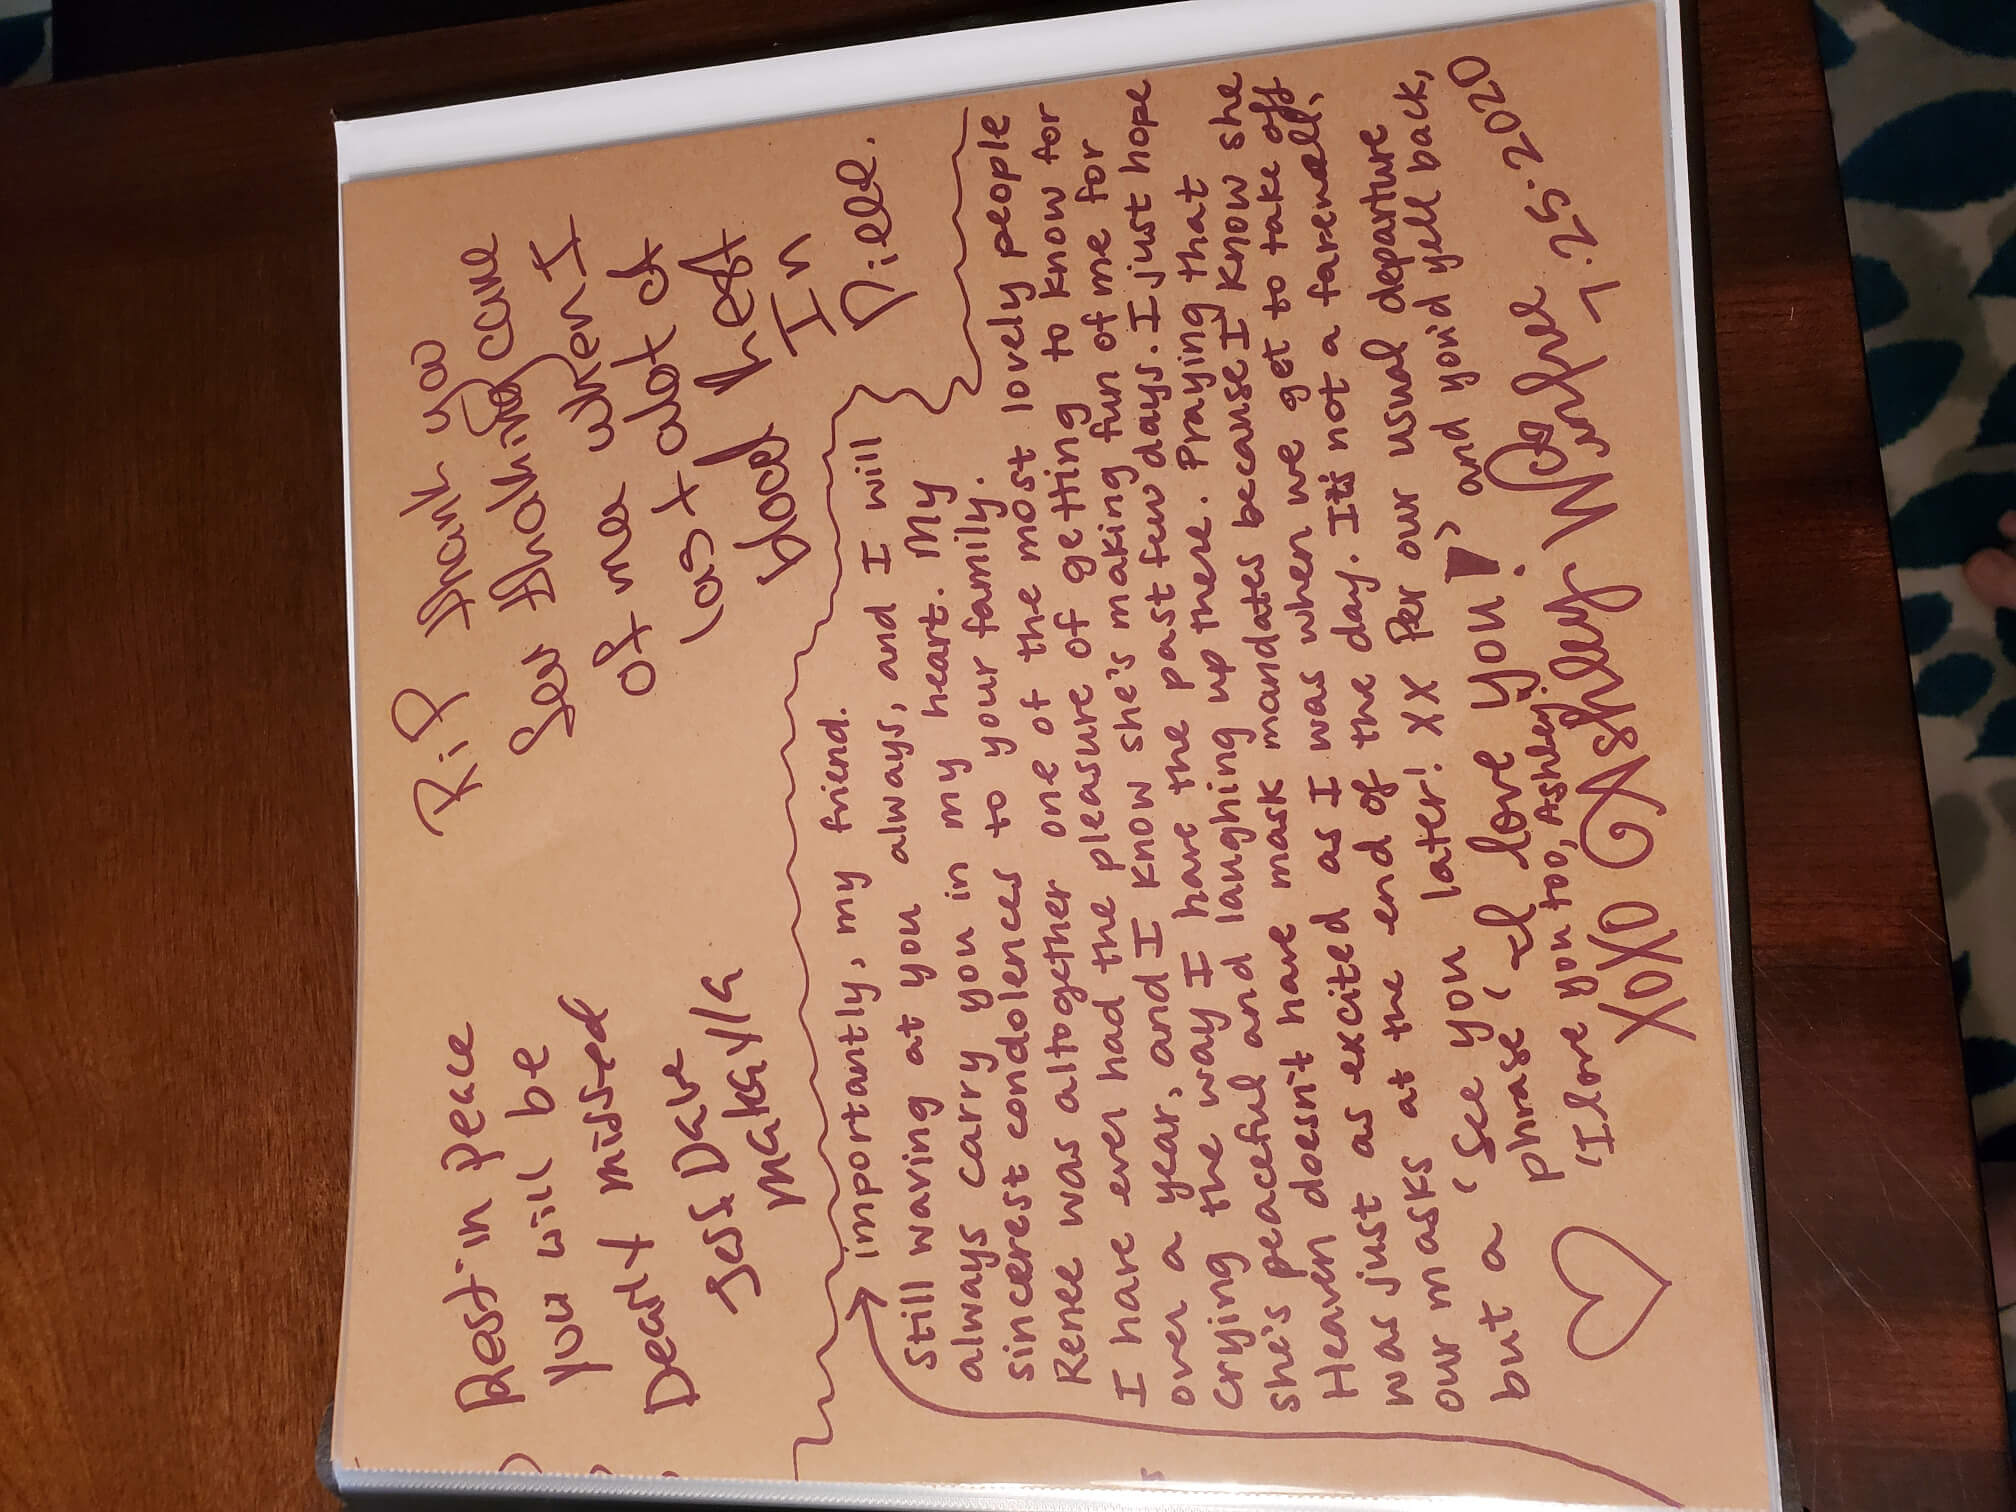 Rest in peace
you will be
Dearly missed
Jess Dave
makayla
R.i.P thank you
for thaking care
of me when I
last alot of
blood hest
In
Diell.
importantly, my friend.
Still waving at you always, and I will
always carry you in my heart. My
sincerest condolences to your family.
Renee was altogether one of the most lovely people
I have ever had the pleasure of getting to know for
over a year, and I know she's making fun of me for
crying the way I have the past few days. I just hope
she's peaceful and laughing up there. Praying that
Heaven doesn't have mask mandates because I know she
was just as excited as I was when we get to take off
our masks at the end of the day. It's not a farewell,
but a 'see you later! xx Per our usual departure
phrase, 'I love you!' and you'd yell back,
'I love you too, Ashley
XOXO Ashley
7.25.2020